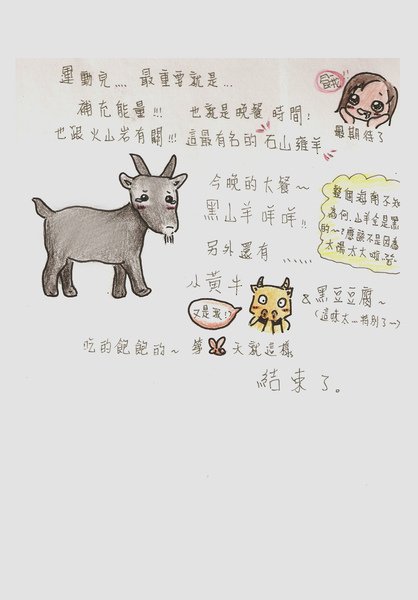 運動完.... 最重要就是...
補充能量!!! 也就是晚餐時間!
最期待了
也跟火山岩有關!!! 這最有名的石山雍羊
今晚的大餐~
黑山羊咩咩!!
另外還有 ......
整個海南不知
為何，山羊全是黑
的~?應該不是因為
太陽太大吧
小黃牛
又是我!?
& 黑豆豆腐~
(這味太...特別了~)
吃的飽飽的~ 第 天就這樣
結束了。